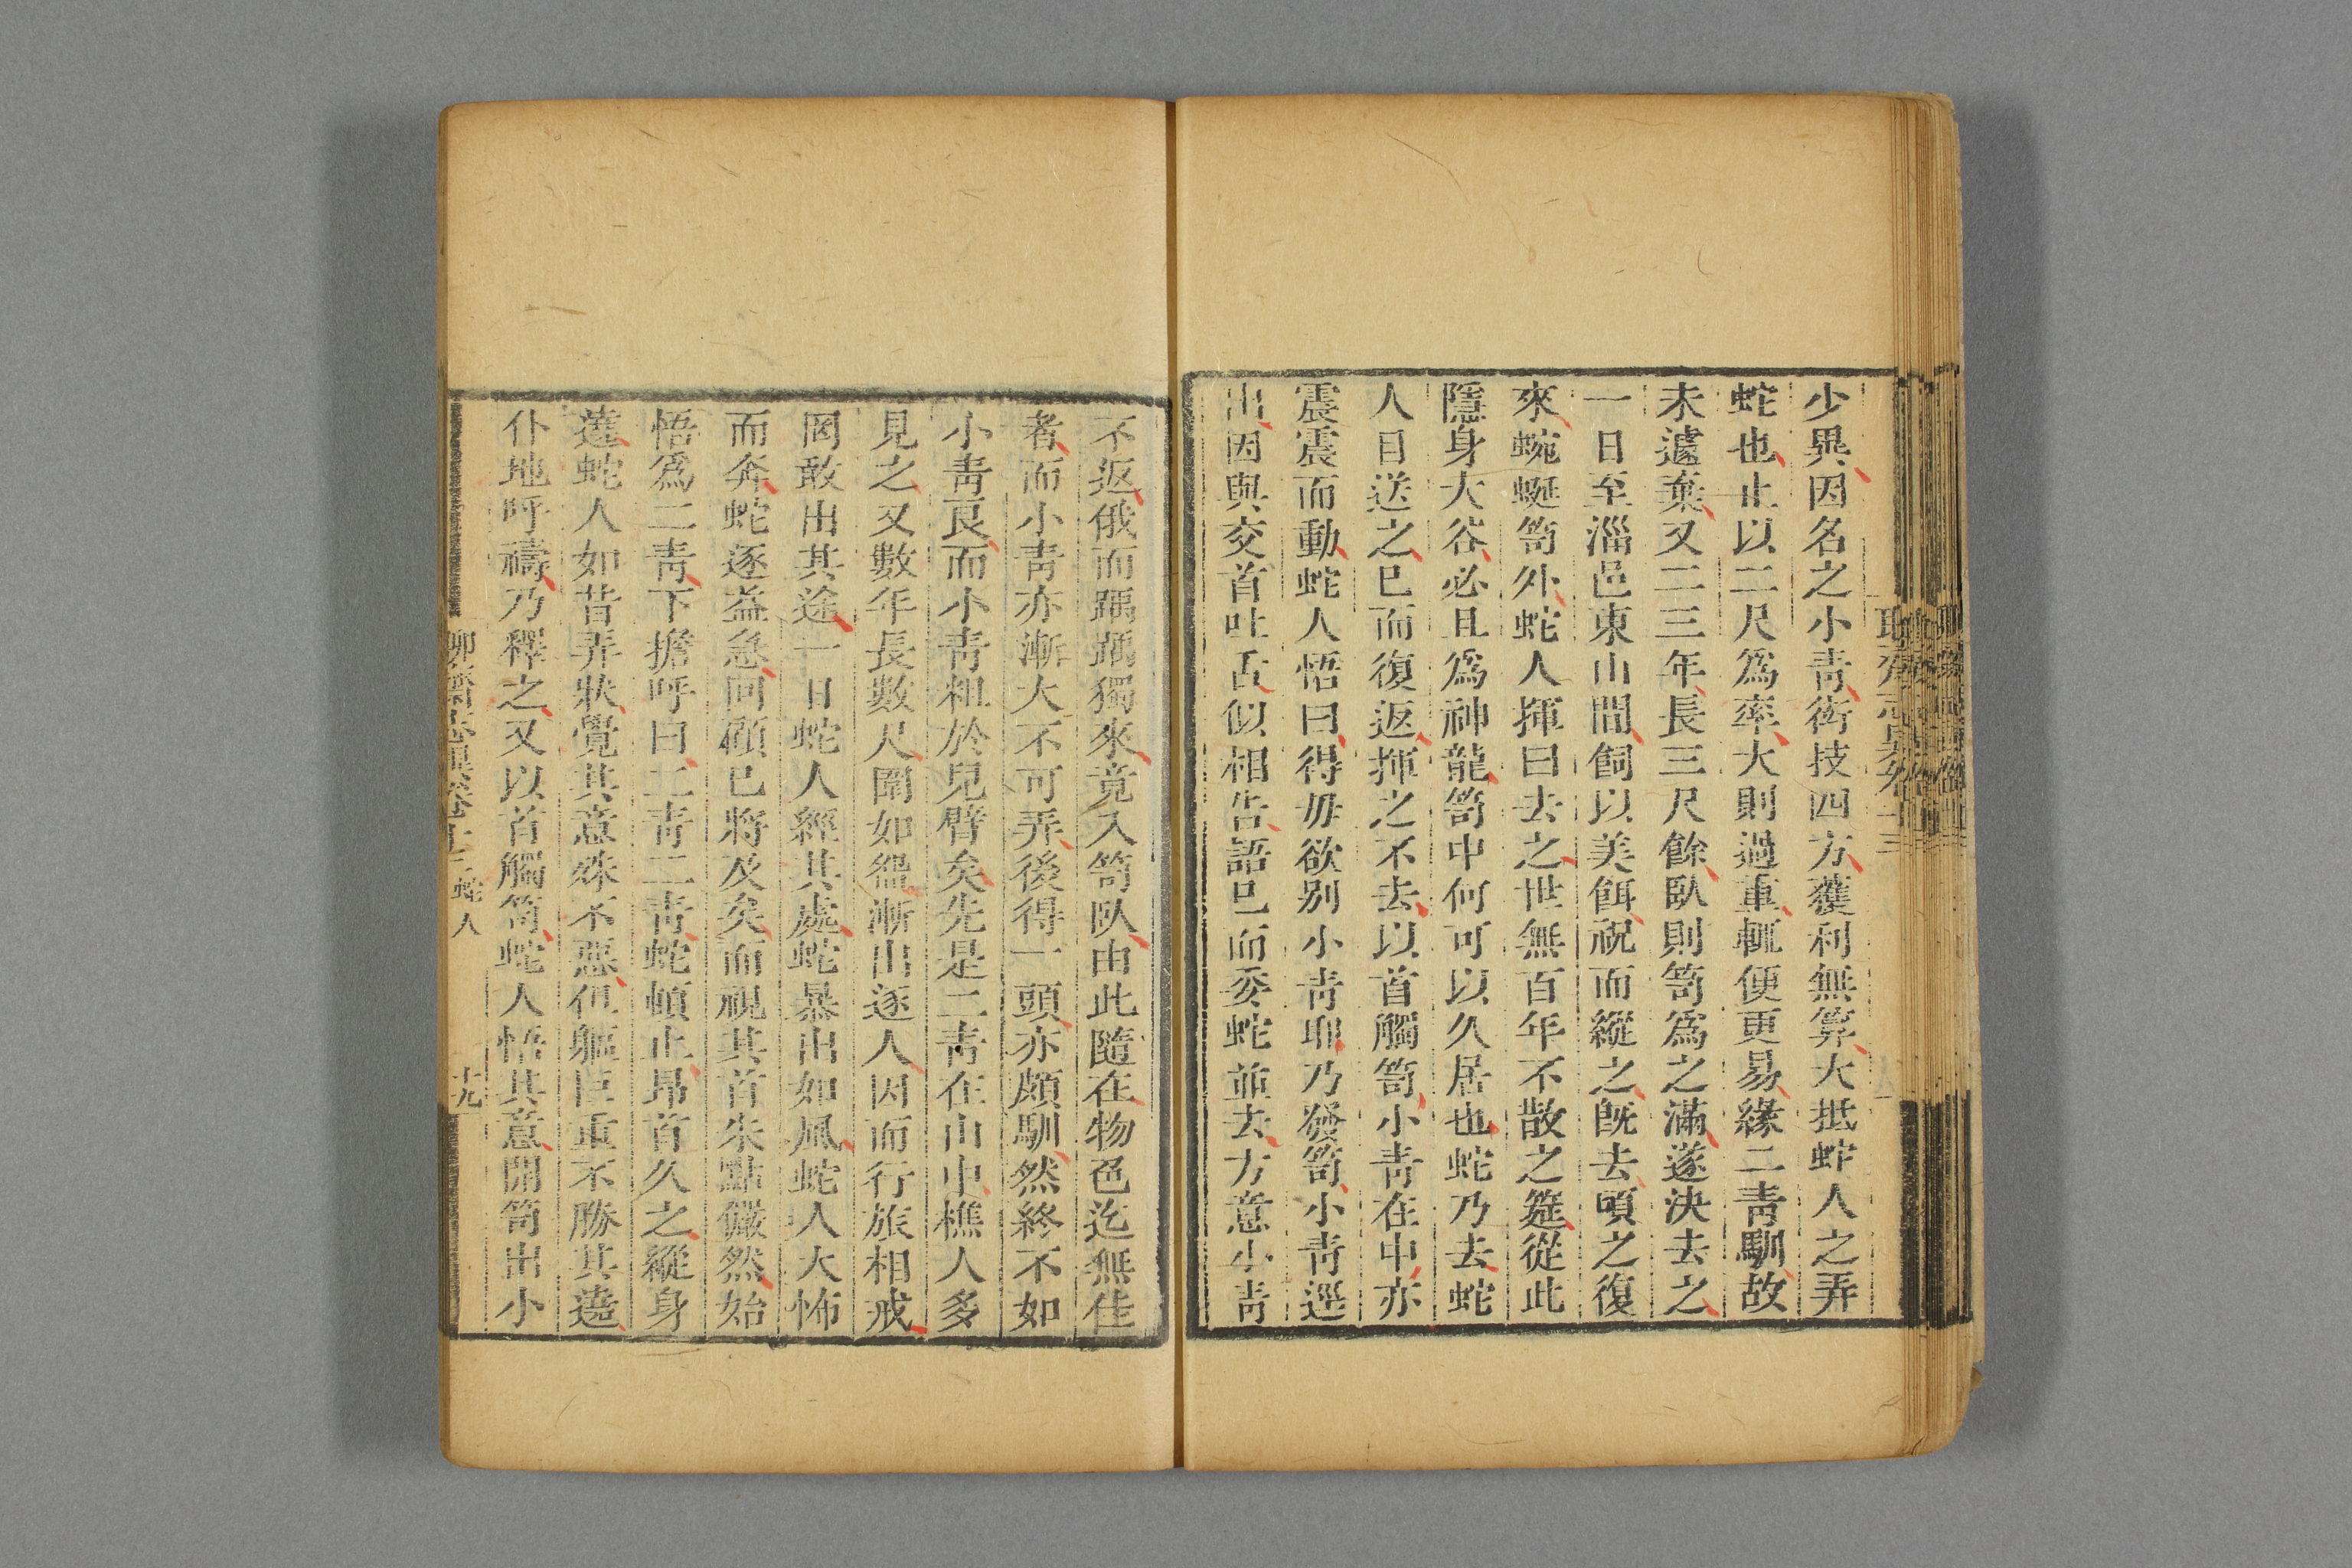 少異因名之小青衒技四方獲利無算大抵蛇人之弄
蛇也止以二尺爲率大則過重輒便更易緣二青馴故
未遽棄又二三年長三尺餘臥則笥爲之滿遂決去之
一日至淄邑東山間飼以美餌祝而縱之旣去頃之復
來蜿蜒笥外蛇人揮曰去之世無百年不散之筵從此
隱身大谷必且爲神龍笥中何可以久居也蛇乃去蛇
人目送之已而復返揮之不去以首觸笥小青在中亦
震震而動蛇人悟曰得毋欲别小青耶乃發笥小青逕
出因與交首吐舌似相告語已而委蛇並去方意小青
不返俄而踽踽獨來竟入笥臥由此隨在物色迄無佳
者而小青亦漸大不可弄後得一頭亦頗馴然終不如
小青良而小青粗於兒臂矣先是二青在山中樵人多
見之又數年長數尺圍如盌漸出逐人因而行旅相戒
罔敢出其途一日蛇人經其處蛇暴出如風蛇人大怖
而奔蛇逐益急回顧已將及矣而視其首朱點儼然始
悟爲二青下擔呼曰二青二青蛇頓止昂首久之縱身
遶蛇人如昔弄狀覺其意殊不惡但軀巨重不勝其遶
仆地呼禱乃釋之又以首觸笥蛇人悟其意開笥出小
聊齋志異卷十三 蛇人 十九